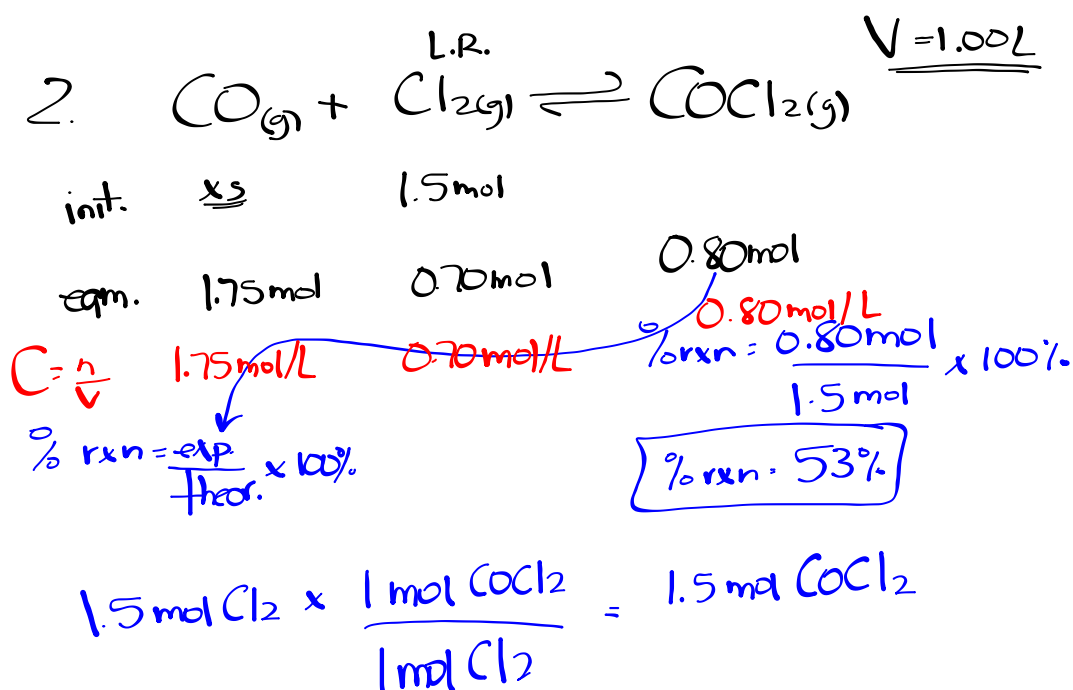 V = 1.00L
L.R.
2. CO(g) + Cl2(g) ⇌ COCl2(g)
init. xs 1.5mol
eqm. 1.75mol 0.70mol 0.80mol
C = n/V 1.75mol/L 0.70mol/L 0.80mol/L
% rxn = exp./theor. x 100%
% rxn = 0.80mol/1.5 mol x 100%
% rxn = 53%
1.5 mol Cl2 x 1 mol COCl2/1 mol Cl2 = 1.5 mol COCl2